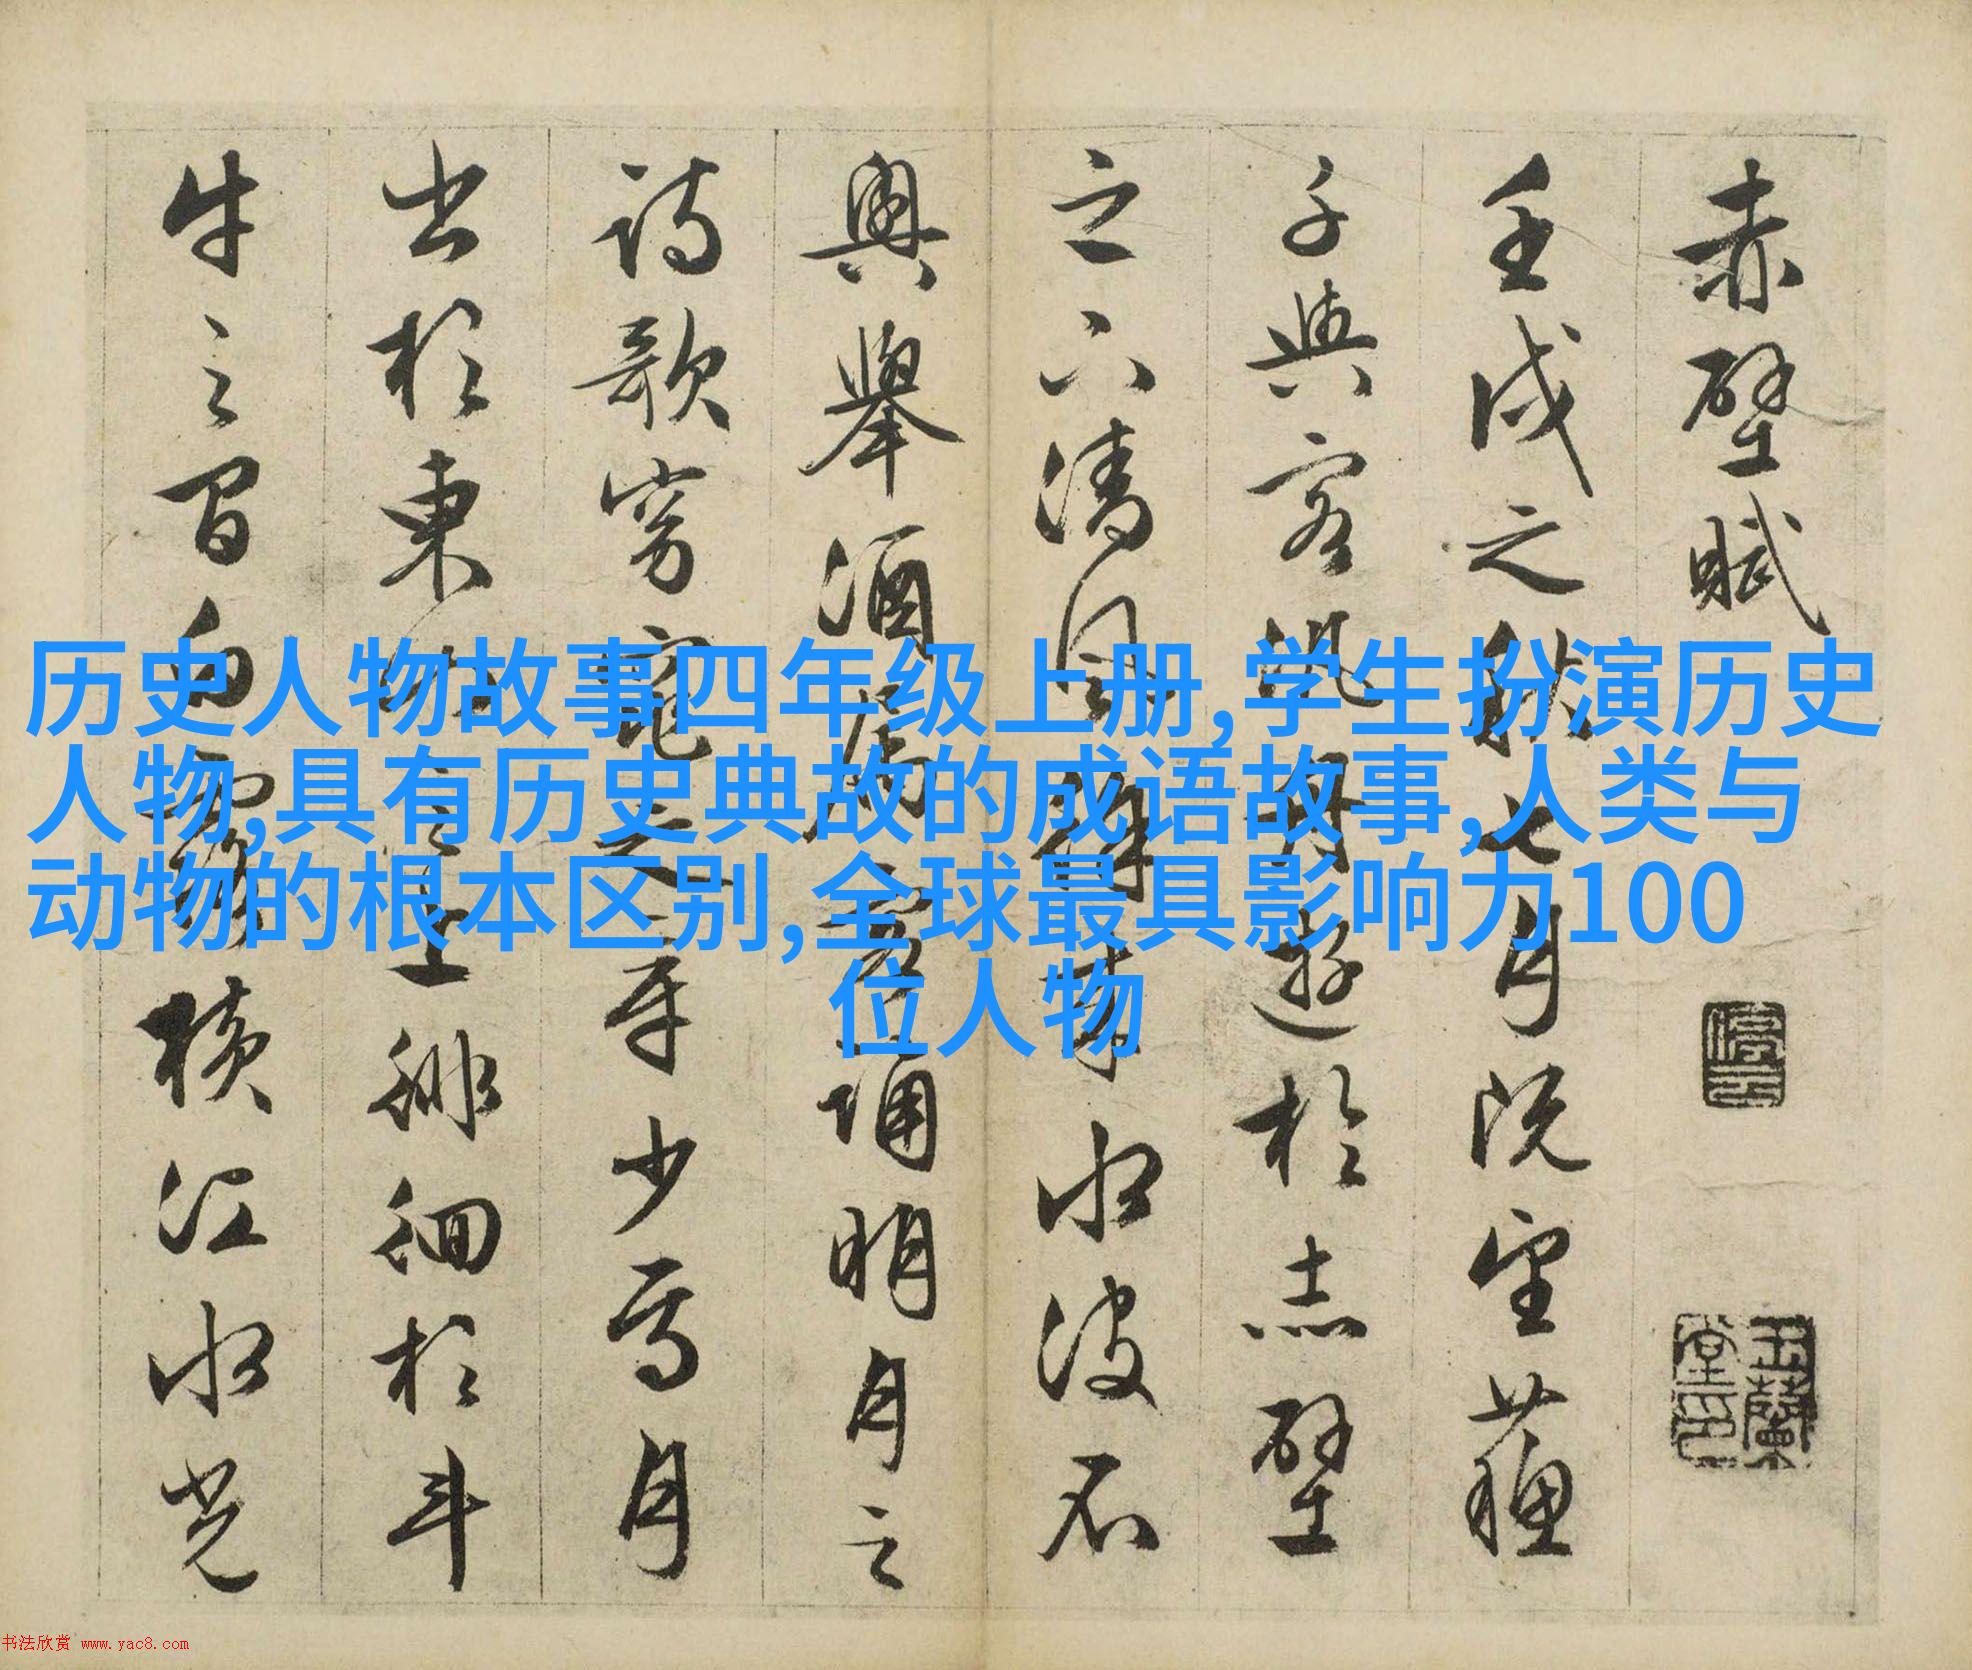 赤壁賦
壬戌之秋七月既望蘇
子與客汎舟遊於赤壁
之下清風徐來水波不
興舉酒屬客誦明月之
詩歌窈窕之章少焉月
出於東山之上徘徊於斗
牛之間白露橫江水光
停雲
玉蘭堂印
历史人物故事四年级上册,学生扮演历史
人物,具有历史典故的成语故事,人类与
动物的根本区别,全球最具影响力100
位人物
书法欣赏 www.yac8.com